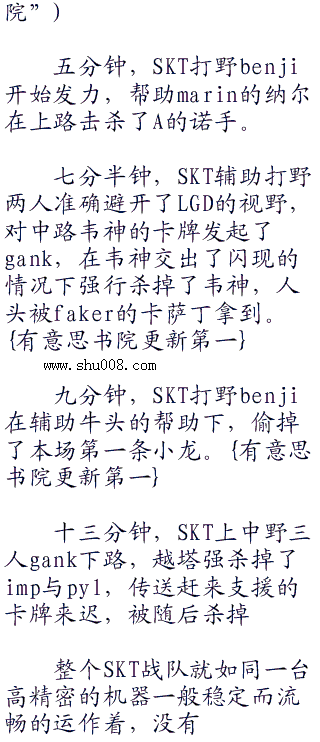 院”）
五分钟，SKT打野benji
开始发力，帮助marin的纳尔
在上路击杀了A的诺手。
七分半钟，SKT辅助打野
两人准确避开了LGD的视野，
对中路韦神的卡牌发起了
gank，在韦神交出了闪现的
情况下强行杀掉了韦神，人
头被faker的卡萨丁拿到。
{有意思书院更新第一}
www.shu008.com
九分钟，SKT打野benji
在辅助牛头的帮助下，偷掉
了本场第一条小龙。{有意思
书院更新第一}
十三分钟，SKT上中野三
人gank下路，越塔强杀掉了
imp与pyl，传送赶来支援的
卡牌来迟，被随后杀掉
整个SKT战队就如同一台
高精密的机器一般稳定而流
畅的运作着，没有